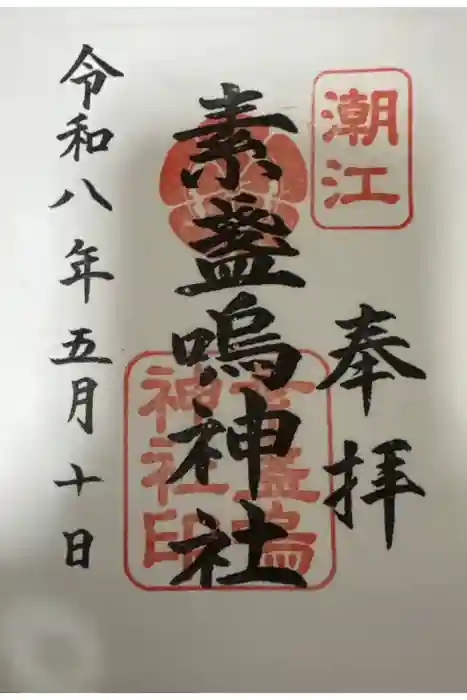 潮江
奉拝
素盞嗚神社
素盞嗚
神社印
令和八年五月十日